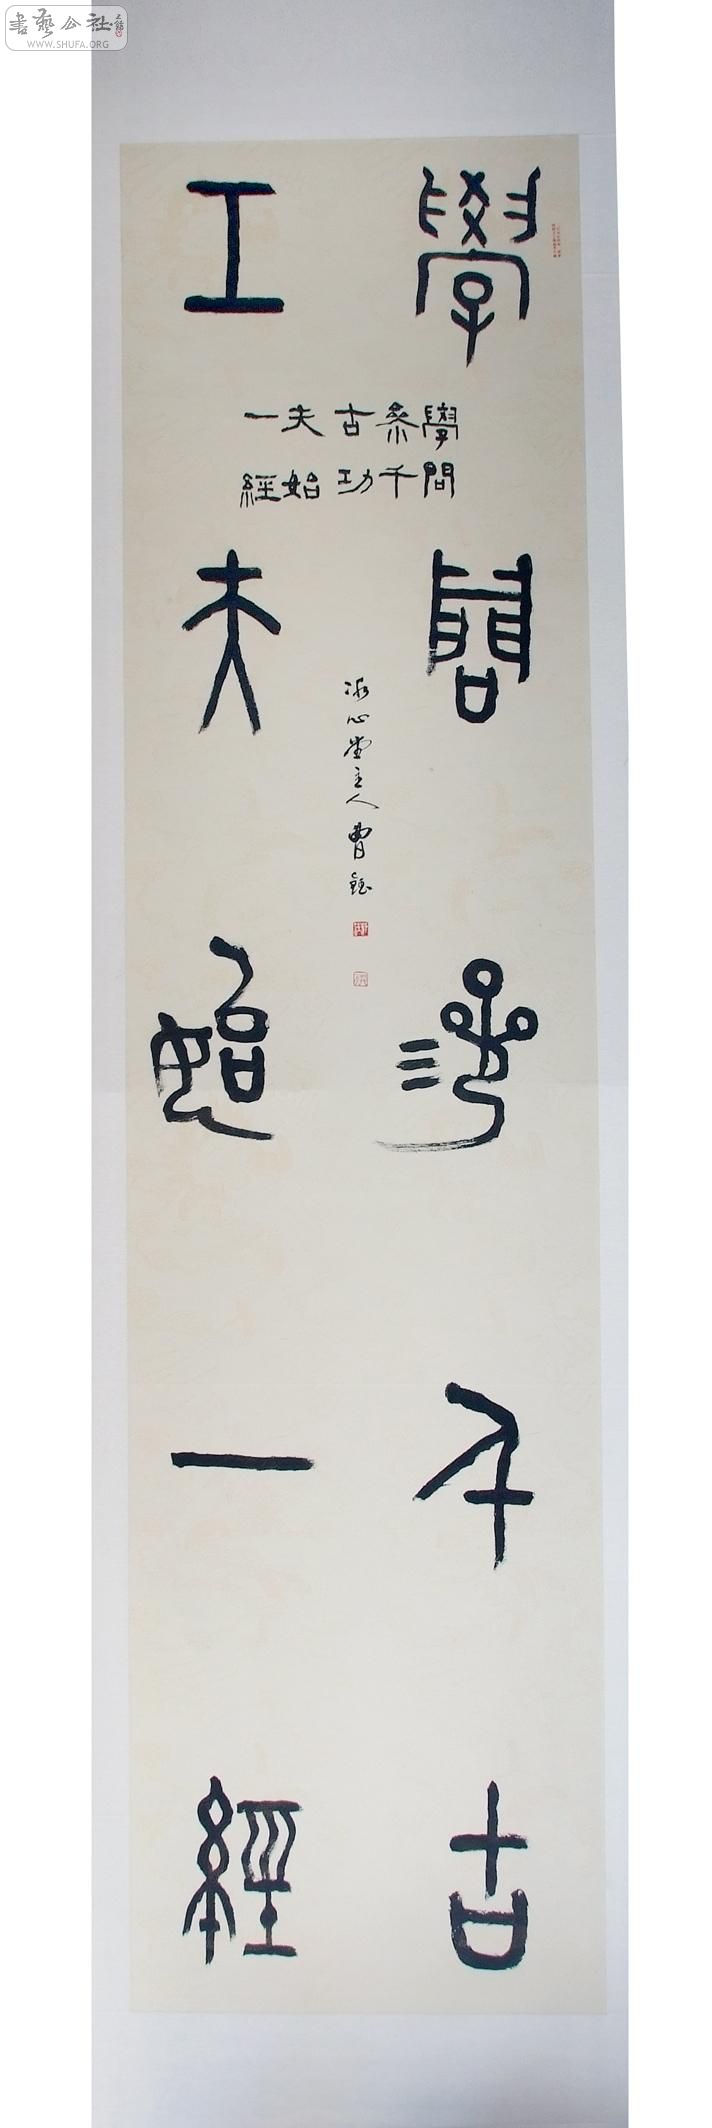 書藝公社
WWW.SHUFA.ORG
學問參千古
工夫始一經
學問
參千
古功
夫始
一經
冰心堂主人曹鈺